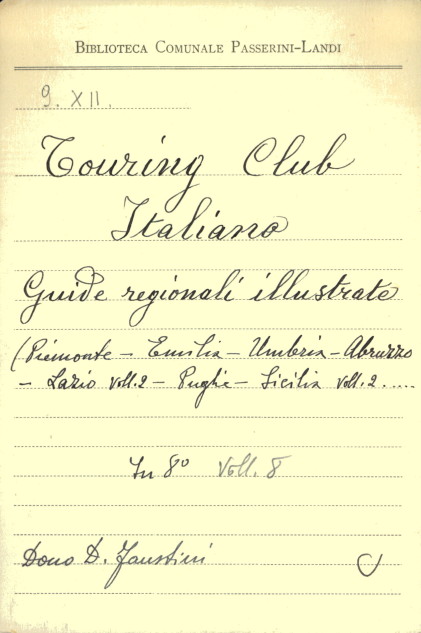 BIBLIOTECA COMUNALE PASSERINI-LANDI
9. XII.
Touring Club
Italiano
Guide regionali illustrate
(Piemonte - Emilia - Umbria - Abruzzo
- Lazio Voll. 2 - Puglie - Sicilia Voll. 2 .....
In 8° Voll. 8
Dono D. Faustini